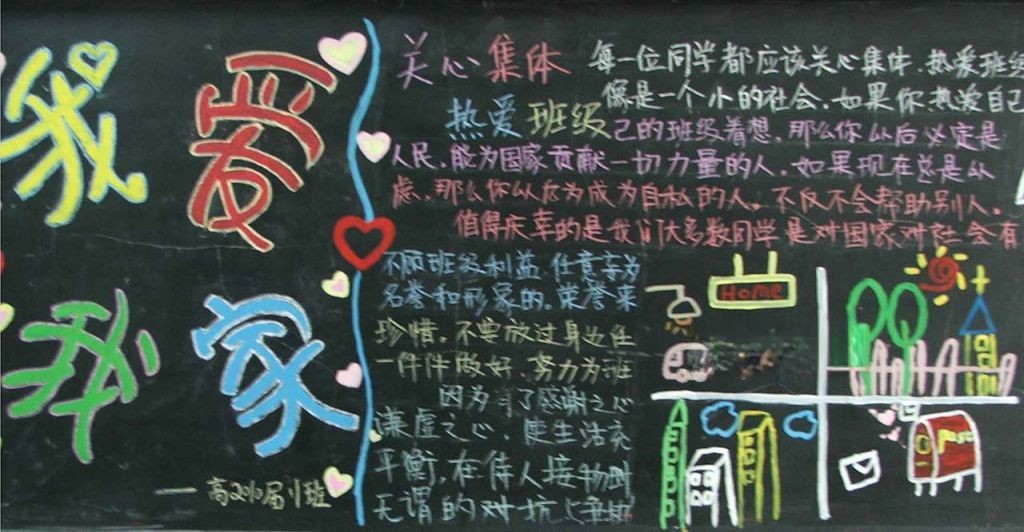 我爱
我家
关心集体
热爱班级
每一位同学都应该关心集体.热爱班级
像是一个小的社会.如果你热爱自己
己的班级着想,那么你以后必定是
人民,能为国家贡献一切力量的人.如果现在总是从
虑,那么你以后为成为自私的人.不仅不会帮助别人.
值得庆幸的是我们大多数同学是对国家对社会有
不顾班级利益,任意妄为
名誉和形象的.荣誉来
珍惜.不要放过身边任
一件件做好.努力为班
因为有了感谢之心
谦虚之心.使生活充
平衡,在待人接物时
无谓的对抗与
Home
Post
一 高 届 班